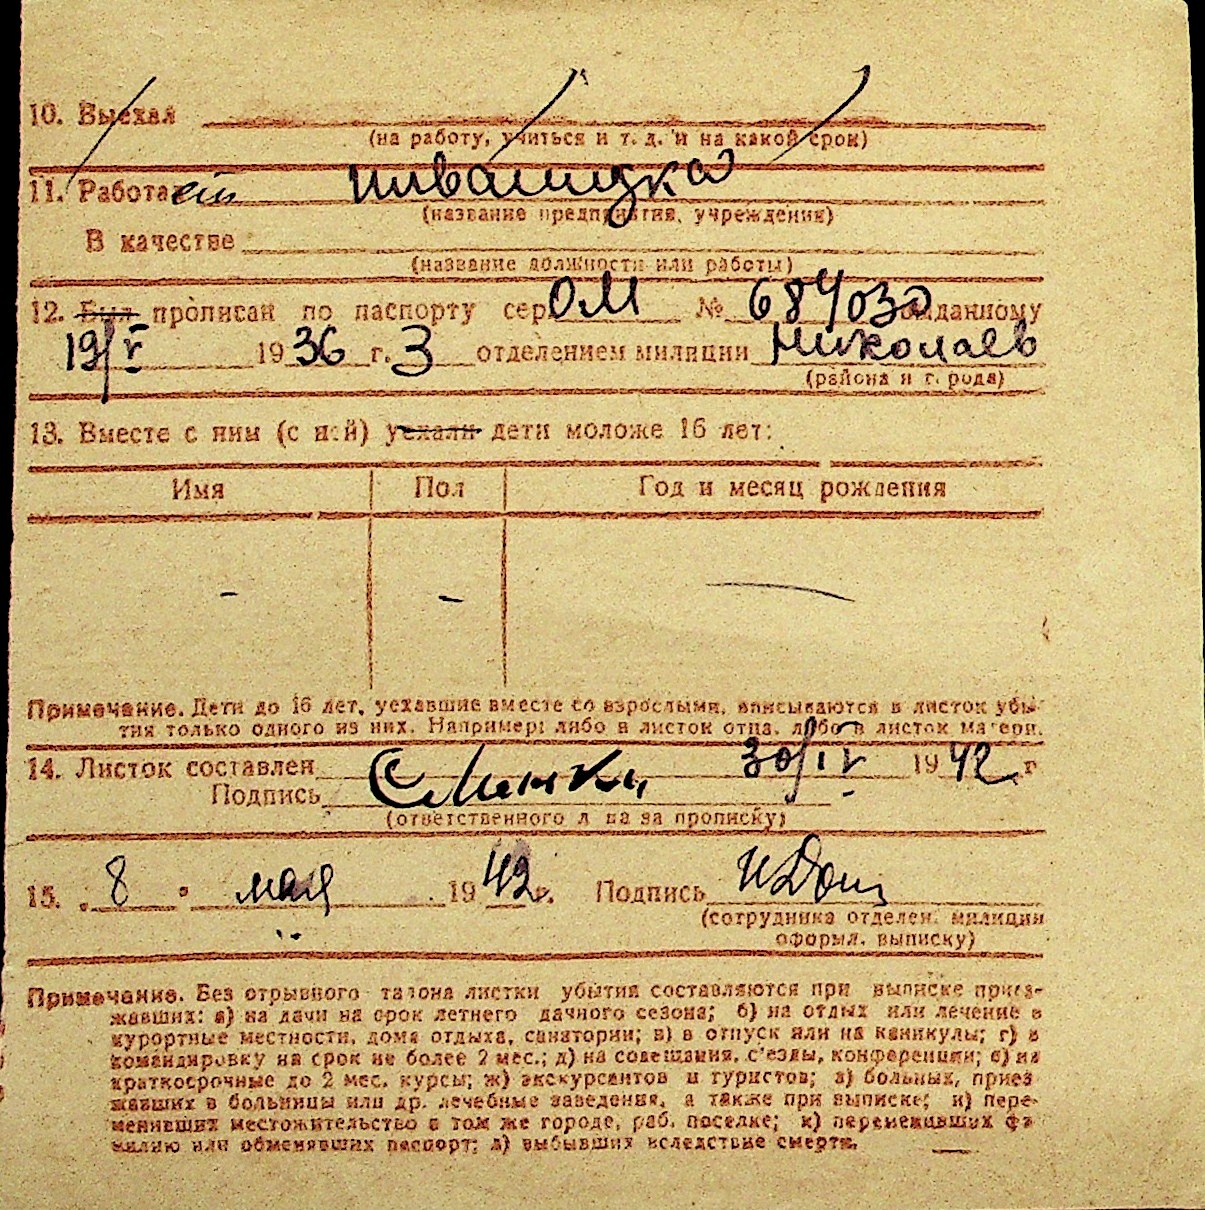 10. Выехал
(на работу, учиться и т. д. и на какой срок)
11. Работает инвалидка
(название предприятия, учреждения)
В качестве
(название должности или работы)
12. Был прописан по паспорту сер. ОМ № 684030 выданному
19/V 1936 г. 3 отделением милиции Николаев
(района и города)
13. Вместе с ним (с ней) уехали дети моложе 16 лет:
Имя Пол Год и месяц рождения
- - —
Примечание. Дети до 16 лет, уехавшие вместе со взрослыми, вписываются в листок убы-
тия только одного из них. Например: либо в листок отца, либо в листок матери.
14. Листок составлен 30/IV 1942 г
Подпись
(ответственного лица за прописку)
15. „8" мая 1942 г. Подпись
(сотрудника отделен. милиции
оформл. выписку)
Примечание. Без отрывного талона листки убытия составляются при выписке приез-
жавших: а) на дачи на срок летнего дачного сезона; б) на отдых или лечение в
курортные местности, дома отдыха, санатории; в) в отпуск или на каникулы; г) в
командировку на срок не более 2 мес.; д) на совещания, с'езды, конференции; е) на
краткосрочные до 2 мес. курсы; ж) экскурсантов и туристов; з) больных, приез
жавших в больницы или др. лечебные заведения, а также при выписке; и) пере-
менивших местожительство в том же городе, раб. поселке; к) переменивших фа-
милию или обменявших паспорт; л) выбывших вследствие смерти.